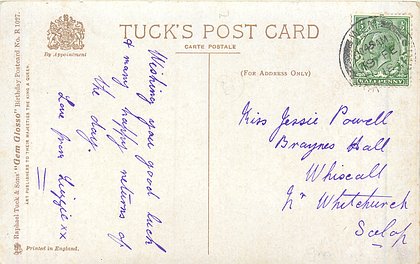 TUCK'S POST CARD
CARTE POSTALE
By Appointment
(FOR ADDRESS ONLY)
Raphael Tuck & Sons' "Gem Glosso" Birthday Postcard No. R 1027.
ART PUBLISHERS TO THEIR MAJESTIES THE KING & QUEEN.
Printed in England.
Wishing you good luck
& many happy returns of
the day.
Love from Lizzie xx
Miss Jessie Powell
Braynes Hall
Whixall
Nr Whitchurch
Salop
HALFPENNY